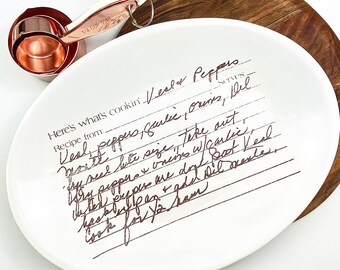 Here's what's cookin' Veal & Peppers
Recipe from SERVES
Veal, peppers, garlic, onions, Del
monte
veal bite size, take out,
fry peppers & onions w/garlic,
when peppers are done Put Veal
back in pan & add Del monte,
cook for 1/2 hour